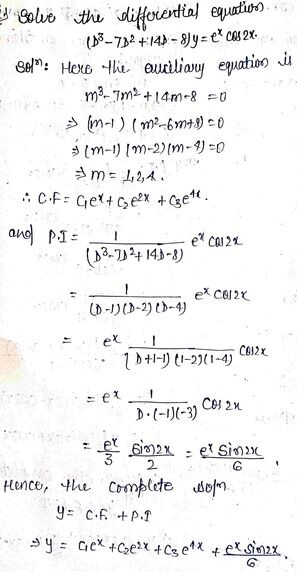 Solve the differential equation
(D³-7D²+14D-8)y = eˣ cos2x.
Solⁿ: Here the auxiliary equation is
m³-7m²+14m-8=0
⇒ (m-1) (m²-6m+8)=0
⇒ (m-1) (m-2)(m-4)=0
⇒ m = 1,2,4.
∴ C.F = C₁eˣ+C₂e²ˣ+C₃e⁴ˣ.
and P.I = 1/(D³-7D²+14D-8) eˣ cos2x
= 1/((D-1)(D-2)(D-4)) eˣ cos2x
= eˣ 1/((D+1-1)(1-2)(1-4)) cos2x
= eˣ 1/(D·(-1)(-3)) cos2x
= eˣ/3 sin2x/2 = eˣ sin2x/6.
Hence, the complete solⁿ
y = C.F + P.I
⇒ y = C₁eˣ+C₂e²ˣ+C₃e⁴ˣ + eˣ sin2x/6.